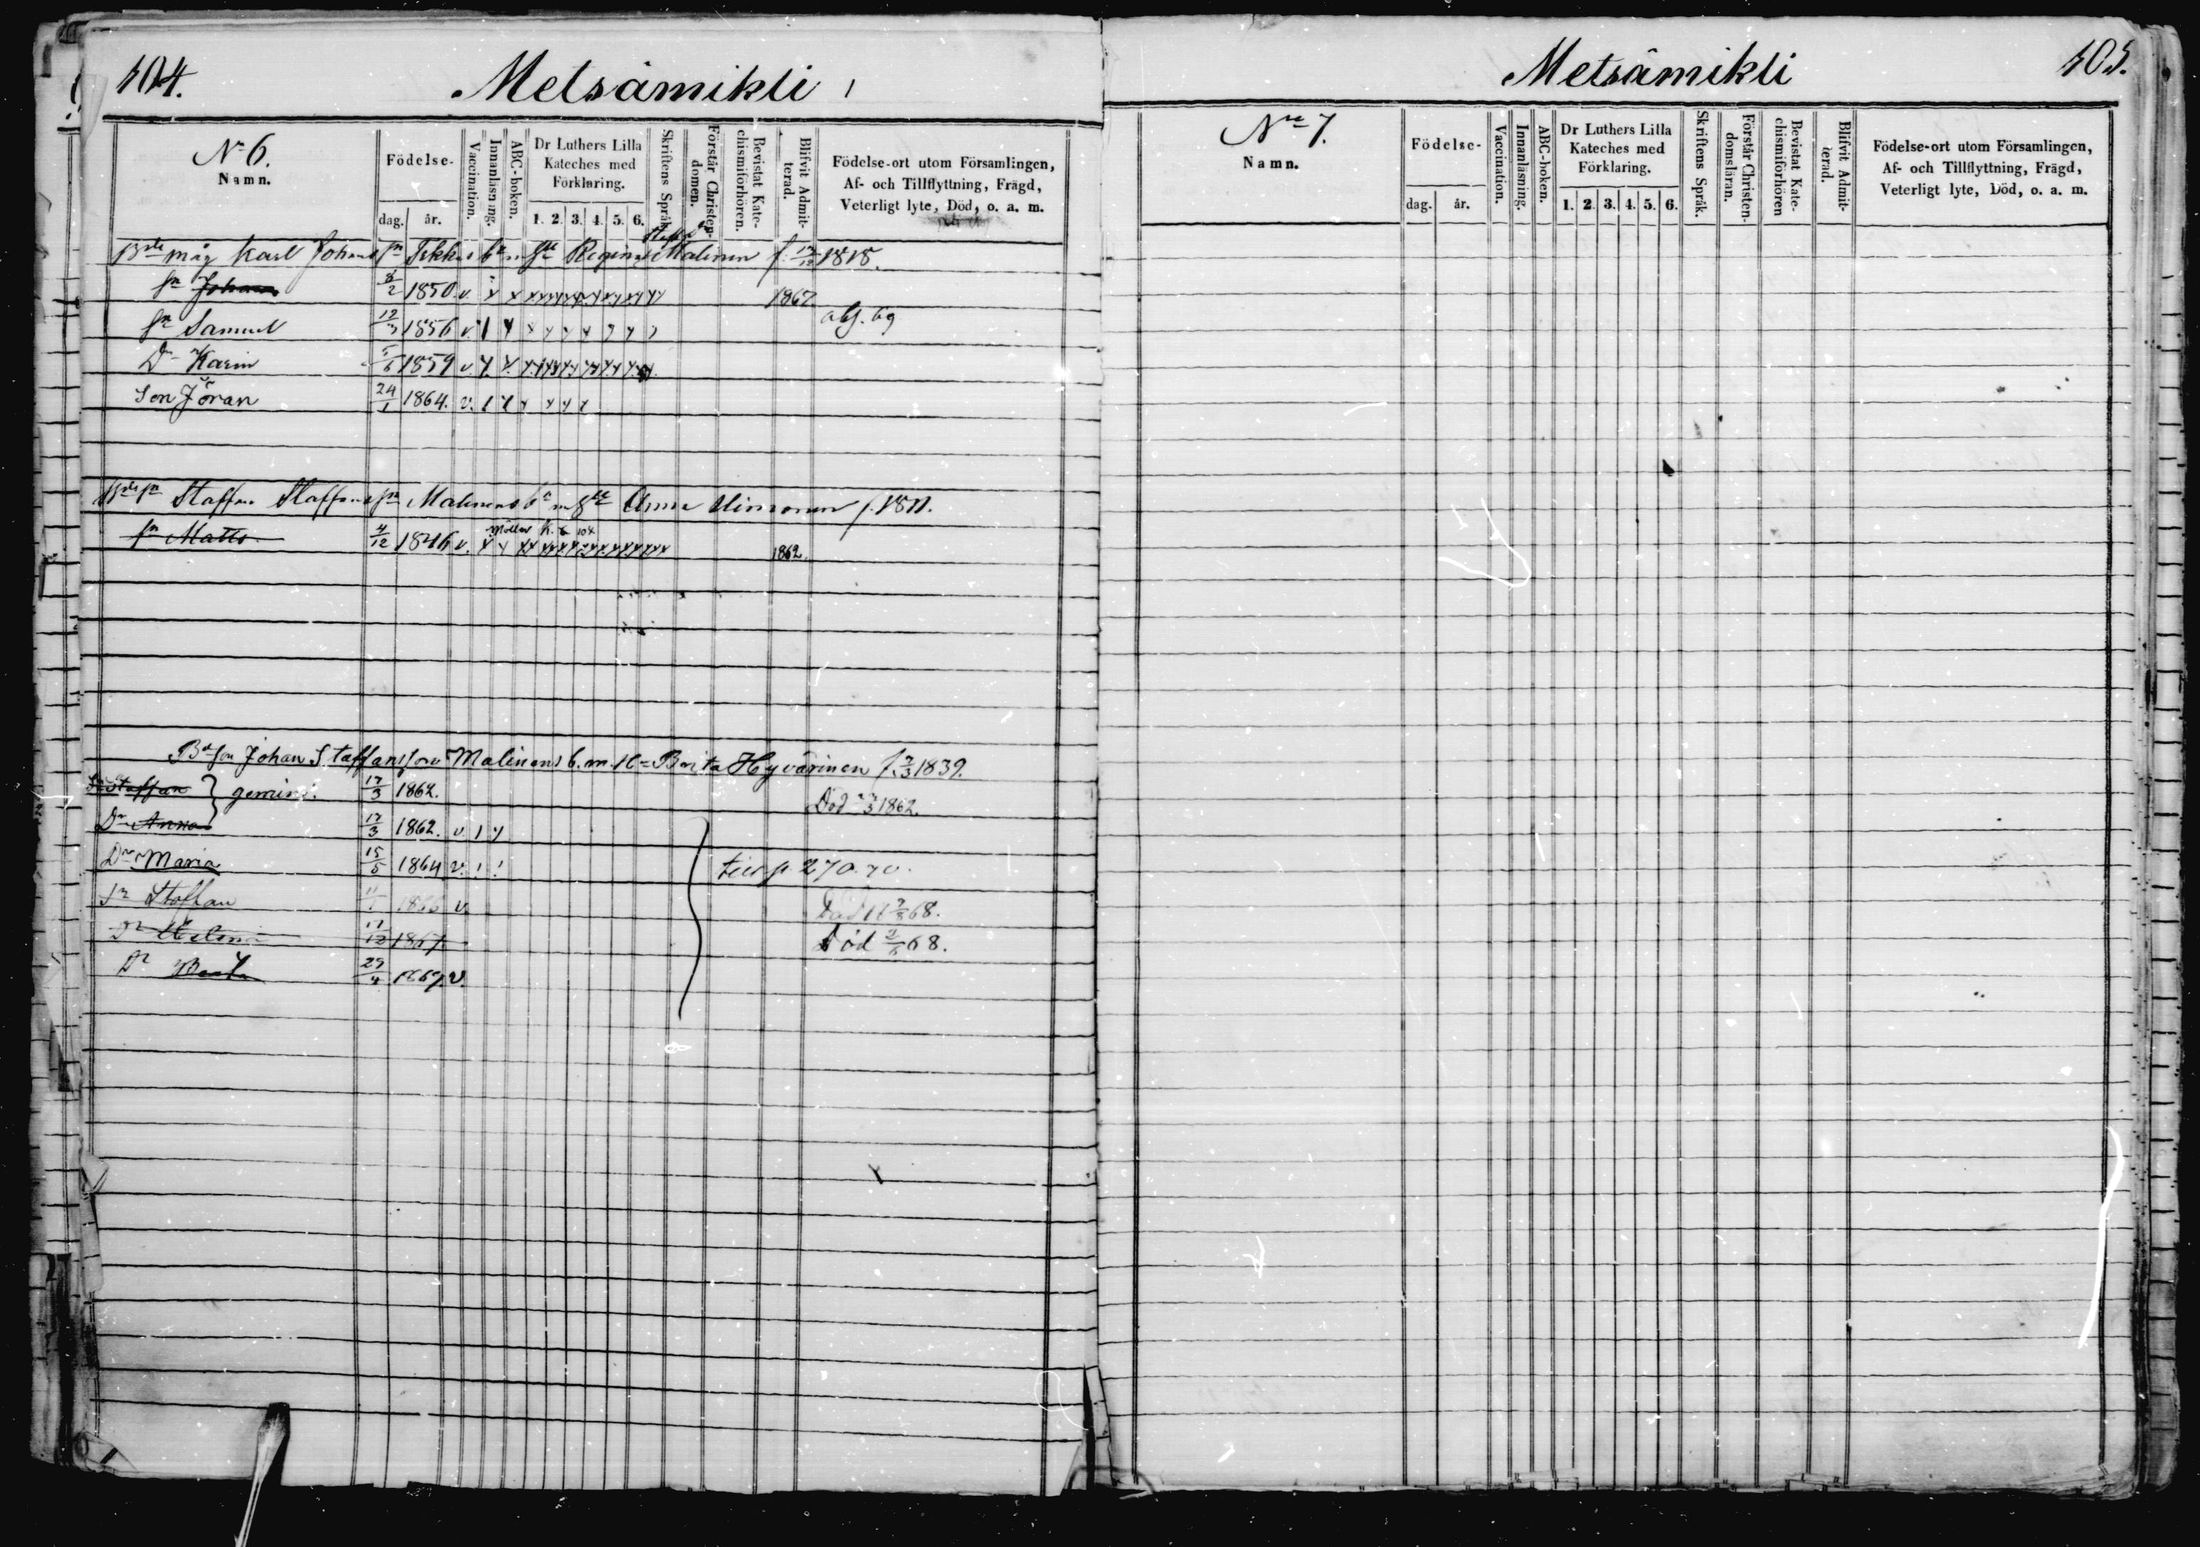 404.
Metsämikli
No 6.
Namn.
Födelse-
dag. år.
Vaccination.
Innanläsning.
ABC-boken.
Dr Luthers Lilla
Kateches med
Förklaring.
1. 2. 3. 4. 5. 6.
Skriftens Språk.
Förstår Christen-
domen.
Bevistat Kate-
chismiförhören.
Blifvit Admit-
terad.
Födelse-ort utom Församlingen,
Af- och Tillflyttning, Frägd,
Veterligt lyte, Död, o. a. m.
Bde måg Karl Johans sn m Regina Malinen f. 1818.
sn Johan 1850. v. 1867
sn Samuel 12/3 1856 v. afs. 69
Dr Karin 1859 v.
Son Jöran 24/1 1864. v.
Staffan Staffans sn Malinens Anna f. 1811.
sn Matts 4/12 1846 v. 1862.
Bd son Johan Staffansson Malinens b. m. H. Brita Hyvärinen f. 7/3 1839.
Sn Staffan } gemini. 17/3 1862. Död 1862.
Dr Anna 17/3 1862. v
Dr Maria 15/5 1864 v. p. 270. 70.
Sn Staffan 1866 v. Död 68.
Dr Helena 17/12 1867 Död 68.
Dr 29/4 1869 v.
Metsämikli
405.
No 7.
Namn.
Födelse-
dag. år.
Vaccination.
Innanläsning.
ABC-boken.
Dr Luthers Lilla
Kateches med
Förklaring.
1. 2. 3. 4. 5. 6.
Skriftens Språk.
Förstår Christen-
domsläran.
Bevistat Kate-
chismiförhören
Blifvit Admit-
terad.
Födelse-ort utom Församlingen,
Af- och Tillflyttning, Frägd,
Veterligt lyte, Död, o. a. m.